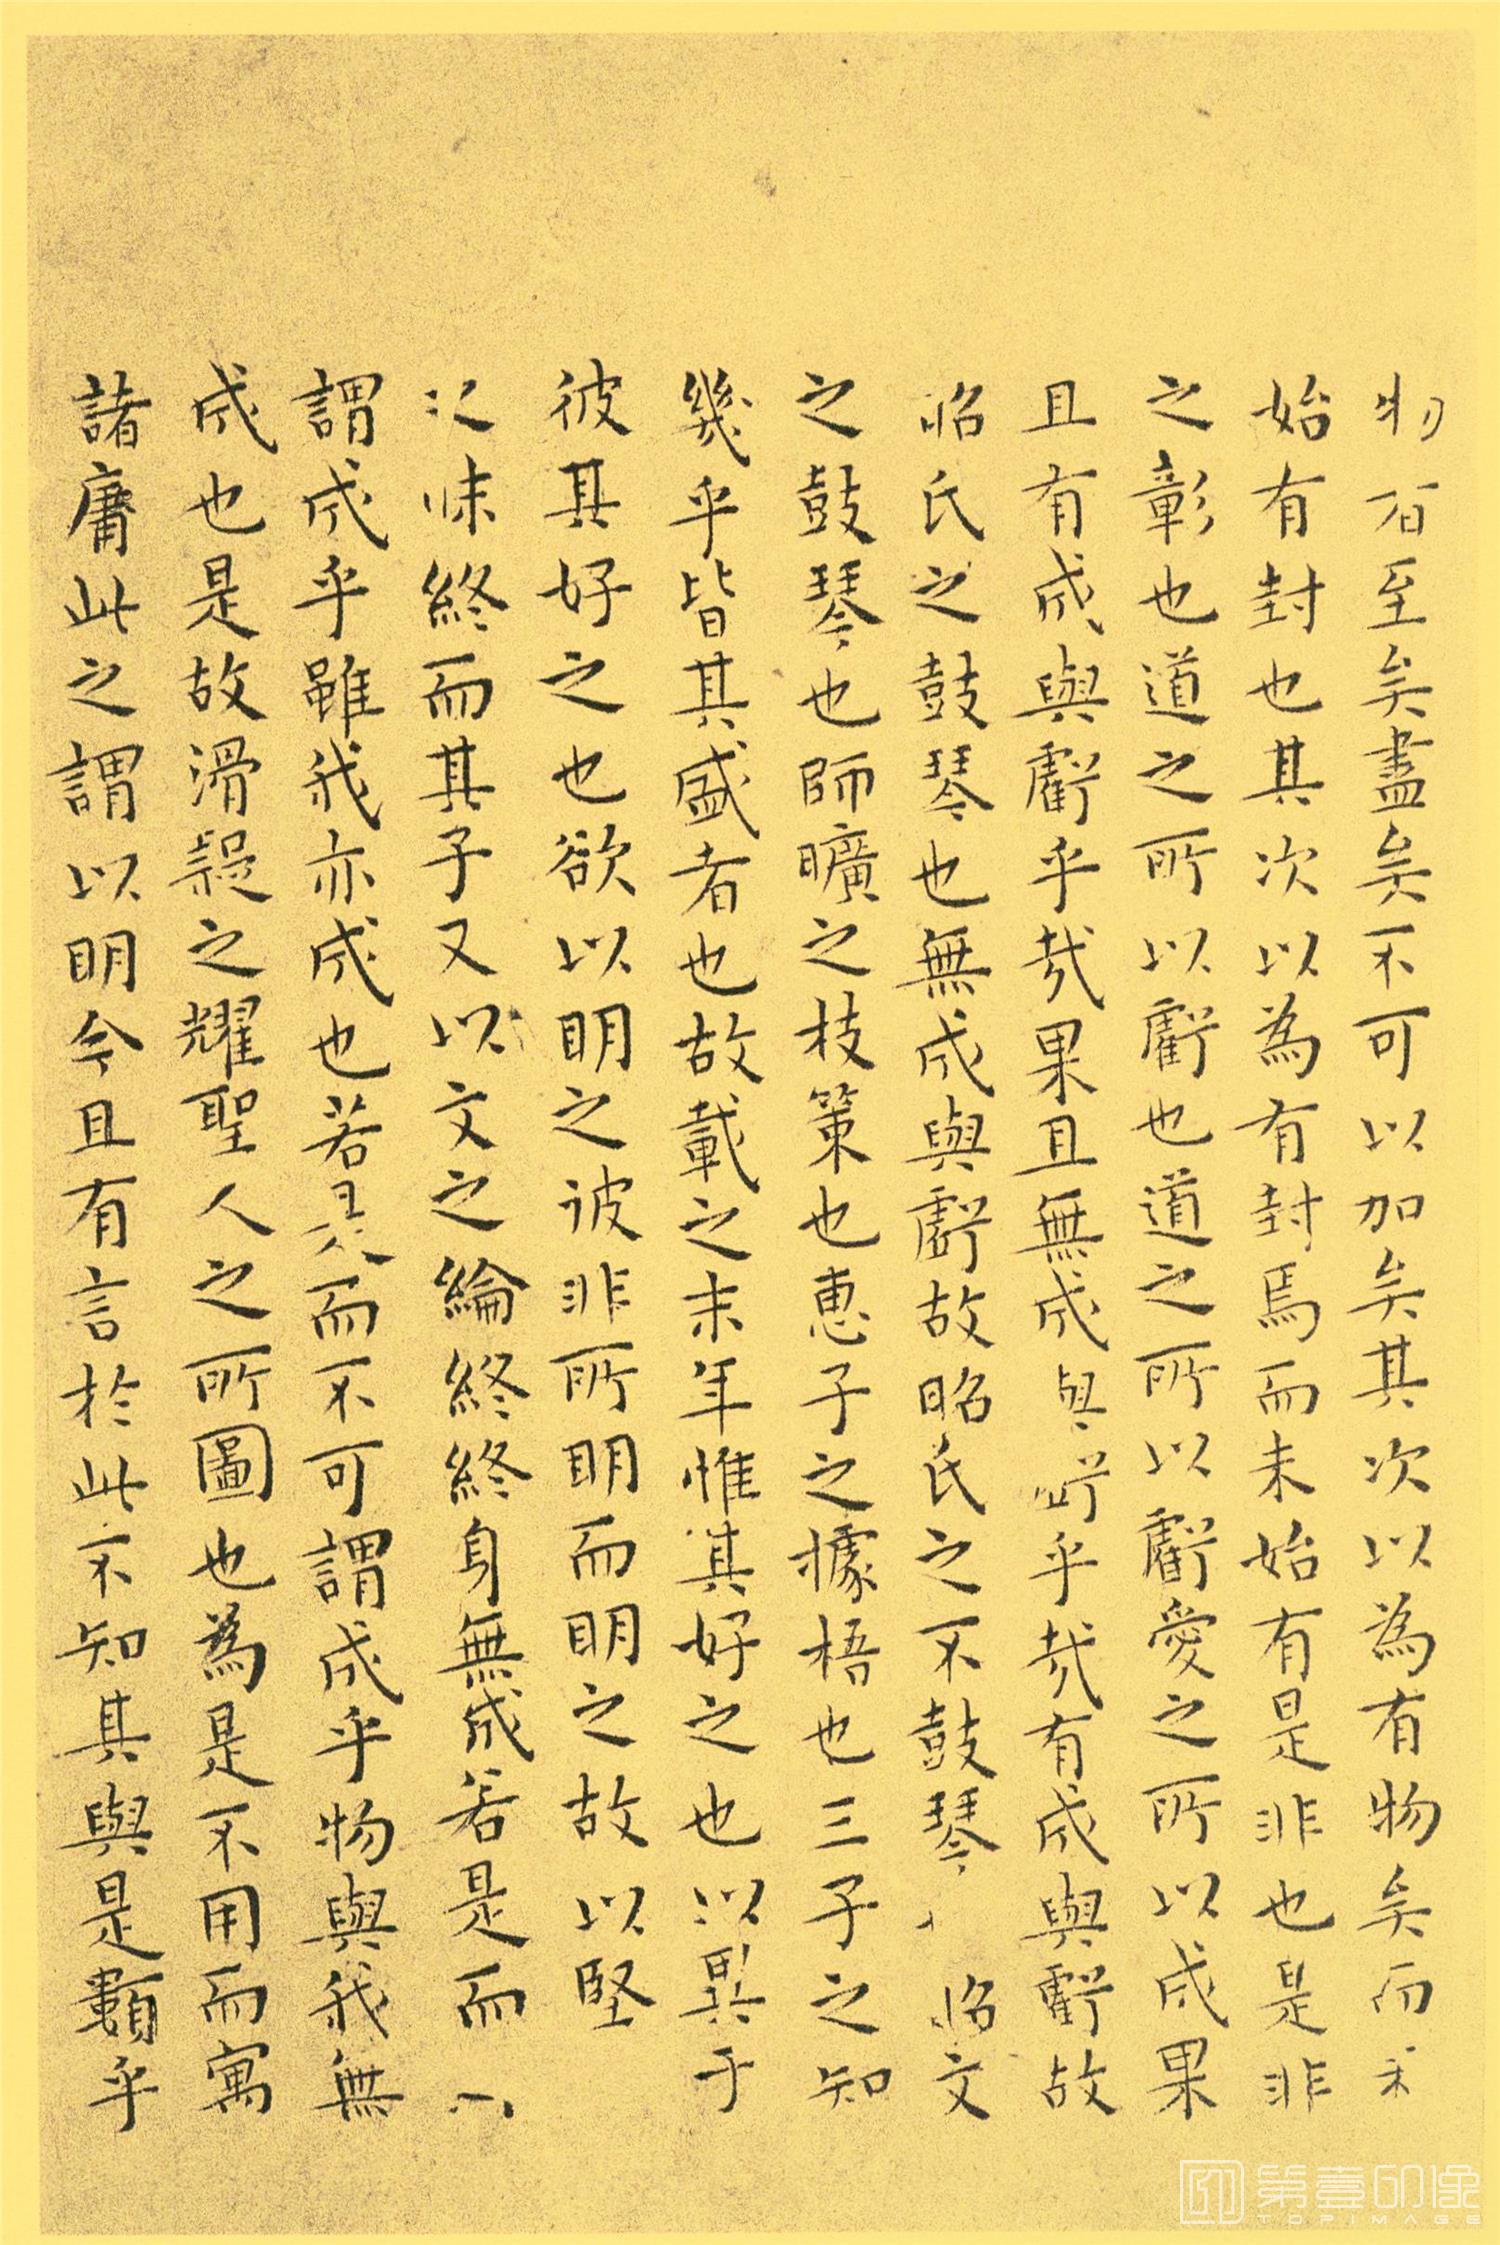 物者至矣盡矣不可以加矣其次以為有物矣而未
始有封也其次以為有封焉而未始有是非也是非
之彰也道之所以虧也道之所以虧愛之所以成果
且有成與虧乎哉果且無成與虧乎哉有成與虧故
昭氏之鼓琴也無成與虧故昭氏之不鼓琴也昭文
之鼓琴也師曠之枝策也惠子之據梧也三子之知
幾乎皆其盛者也故載之末年惟其好之也以異于
彼其好之也欲以明之彼非所明而明之故以堅
之昧終而其子又以文之綸終終身無成若是而
謂成乎雖我亦成也若是而不可謂成乎物與我無
成也是故滑疑之耀聖人之所圖也為是不用而寓
諸庸此之謂以明今且有言於此不知其與是類乎
第壹印像
TOPIMAGE